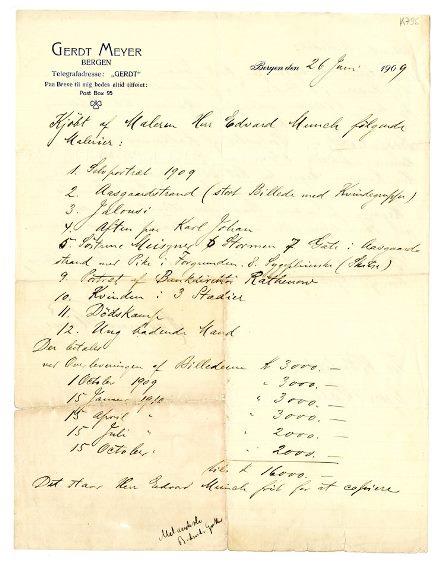 K 736
GERDT MEYER
BERGEN
Telegrafadresse: „GERDT"
Paa Breve til mig bedes altid tilføiet:
Post Box 95
Bergen den 26 Juni 1909
Kjöbt af Maleren Herr Edvard Munch følgende
Malerier:
1. Selvportræt 1909
2. Aasgaardstrand (stort Billede med Kvindegruppe)
3. Jalousi
4. Aften paa Karl Johan
5. 6 Stormen 7 Gate i Aasgaard
strand med Pike i Forgrunden. 8.
9. Portræt af Bankdirektör Rathenow
10. Kvinden i 3 Stadier
11. Dödskamp
12. Ung badende Mand
Der betales
ved Overleveringen af Billederne k 3000.—
1 October 1909 " 3000.—
15 Januar 1910 " 3000.—
15 April " " 3000.—
15 Juli " " 2000.—
15 October " " 2000.—
k 16000.—
Det staar Herr Edvard Munch frit for at copiere